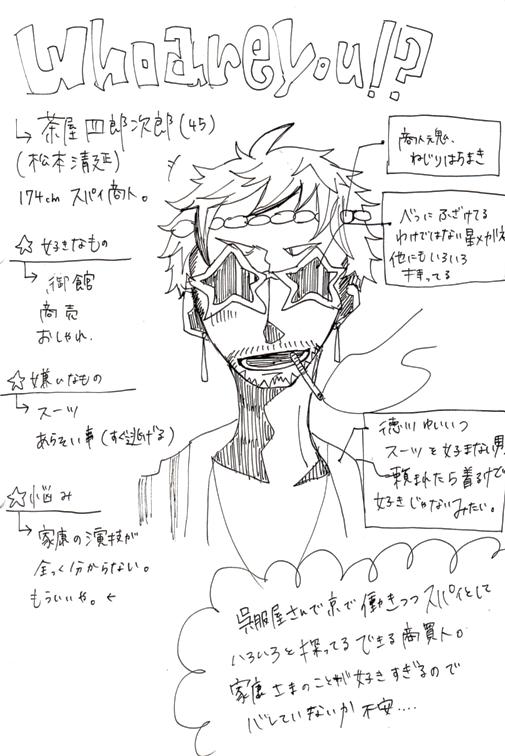 Who are you!?
茶屋四郎次郎(45)
(松本清延)
174cm スパイ商人。
☆好きなもの
御館
商売
おしゃれ
☆嫌いなもの
スーツ
あらそい事(すぐ逃げる)
☆悩み
家康の演技が
全く分からない。
もういいや。←
商人魂、
ねじりはちまき
べつにふざけてる
わけではない星メガネ
他にもいろいろ
持ってる
徳川ゆいいつ
スーツを好まない男
頼まれたら着るけど
好きじゃないみたい。
呉服屋さんで京で働きつつスパイとして
いろいろと探ってるできる商買人。
家康さまのことが好きすぎるので
バレていないか不安....